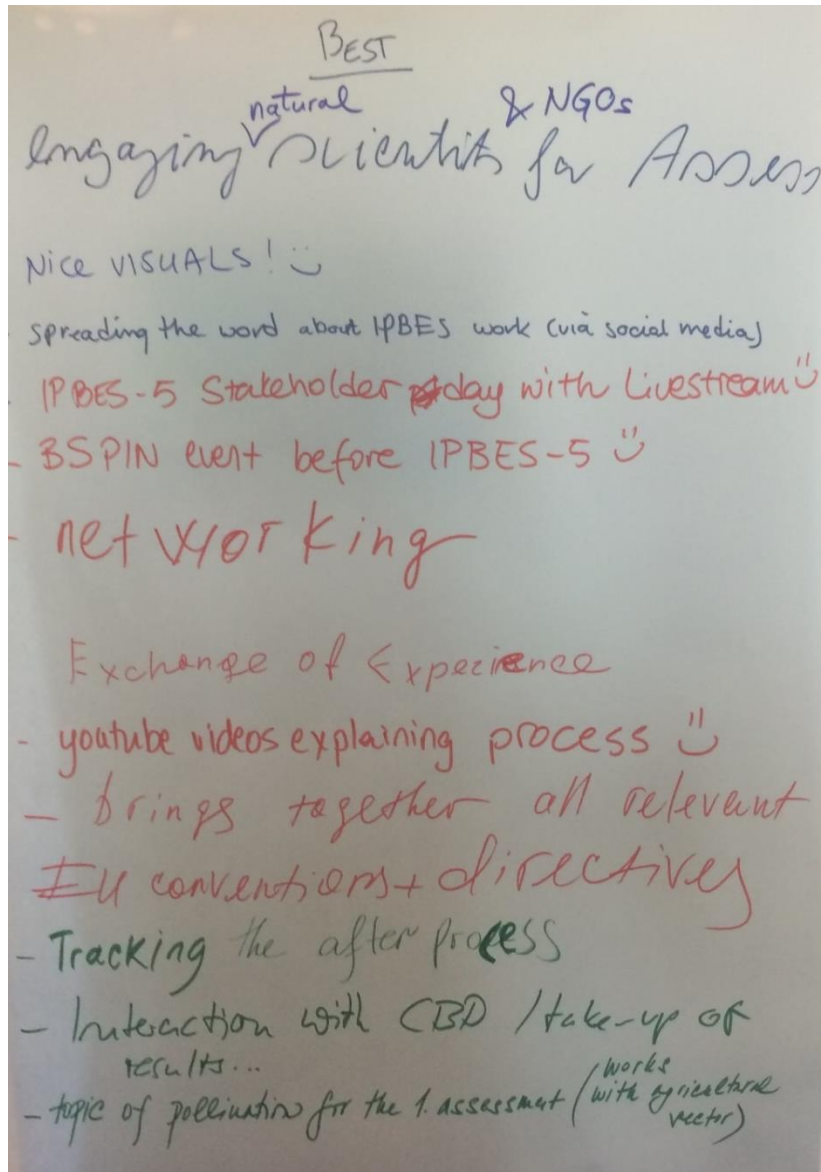 BEST
natural & NGOs
engaging scientits for Assess
Nice VISUALS! :)
- spreading the word about IPBES work (via social media)
- IPBES-5 Stakeholder day with Livestream :)
- BSPIN event before IPBES-5 :)
- networking
Exchange of Experience
- youtube videos explaining process :)
- brings together all relevant
EU conventions + directives
- Tracking the after process
- Interaction with CBD / take-up of
results...
- topic of pollination for the 1. assessment (works
with agricultural
vector)